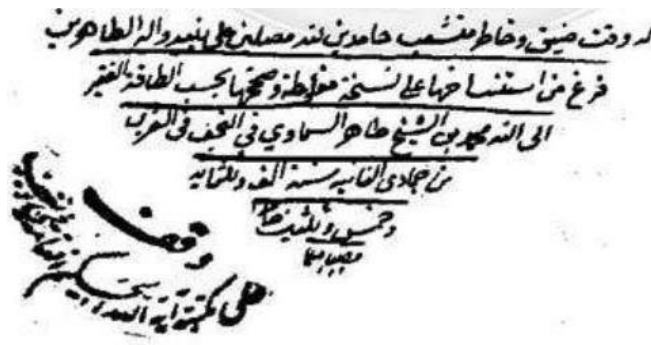 له وقت ضيق وخاطر متشعب حامدين لله مصلين على نبيه واله الطاهرين
فرغ من استنساخها على نسخة مغلوطة وصححها بحسب الطاقة الفقير
الى الله محمد بن الشيخ طاهر السماوي في النجف في الغرب
من جمادى الثانيه سنة الف وثلثمايه
وخمس وثلثين
وقف
على مكتبة آية الله الحكيم